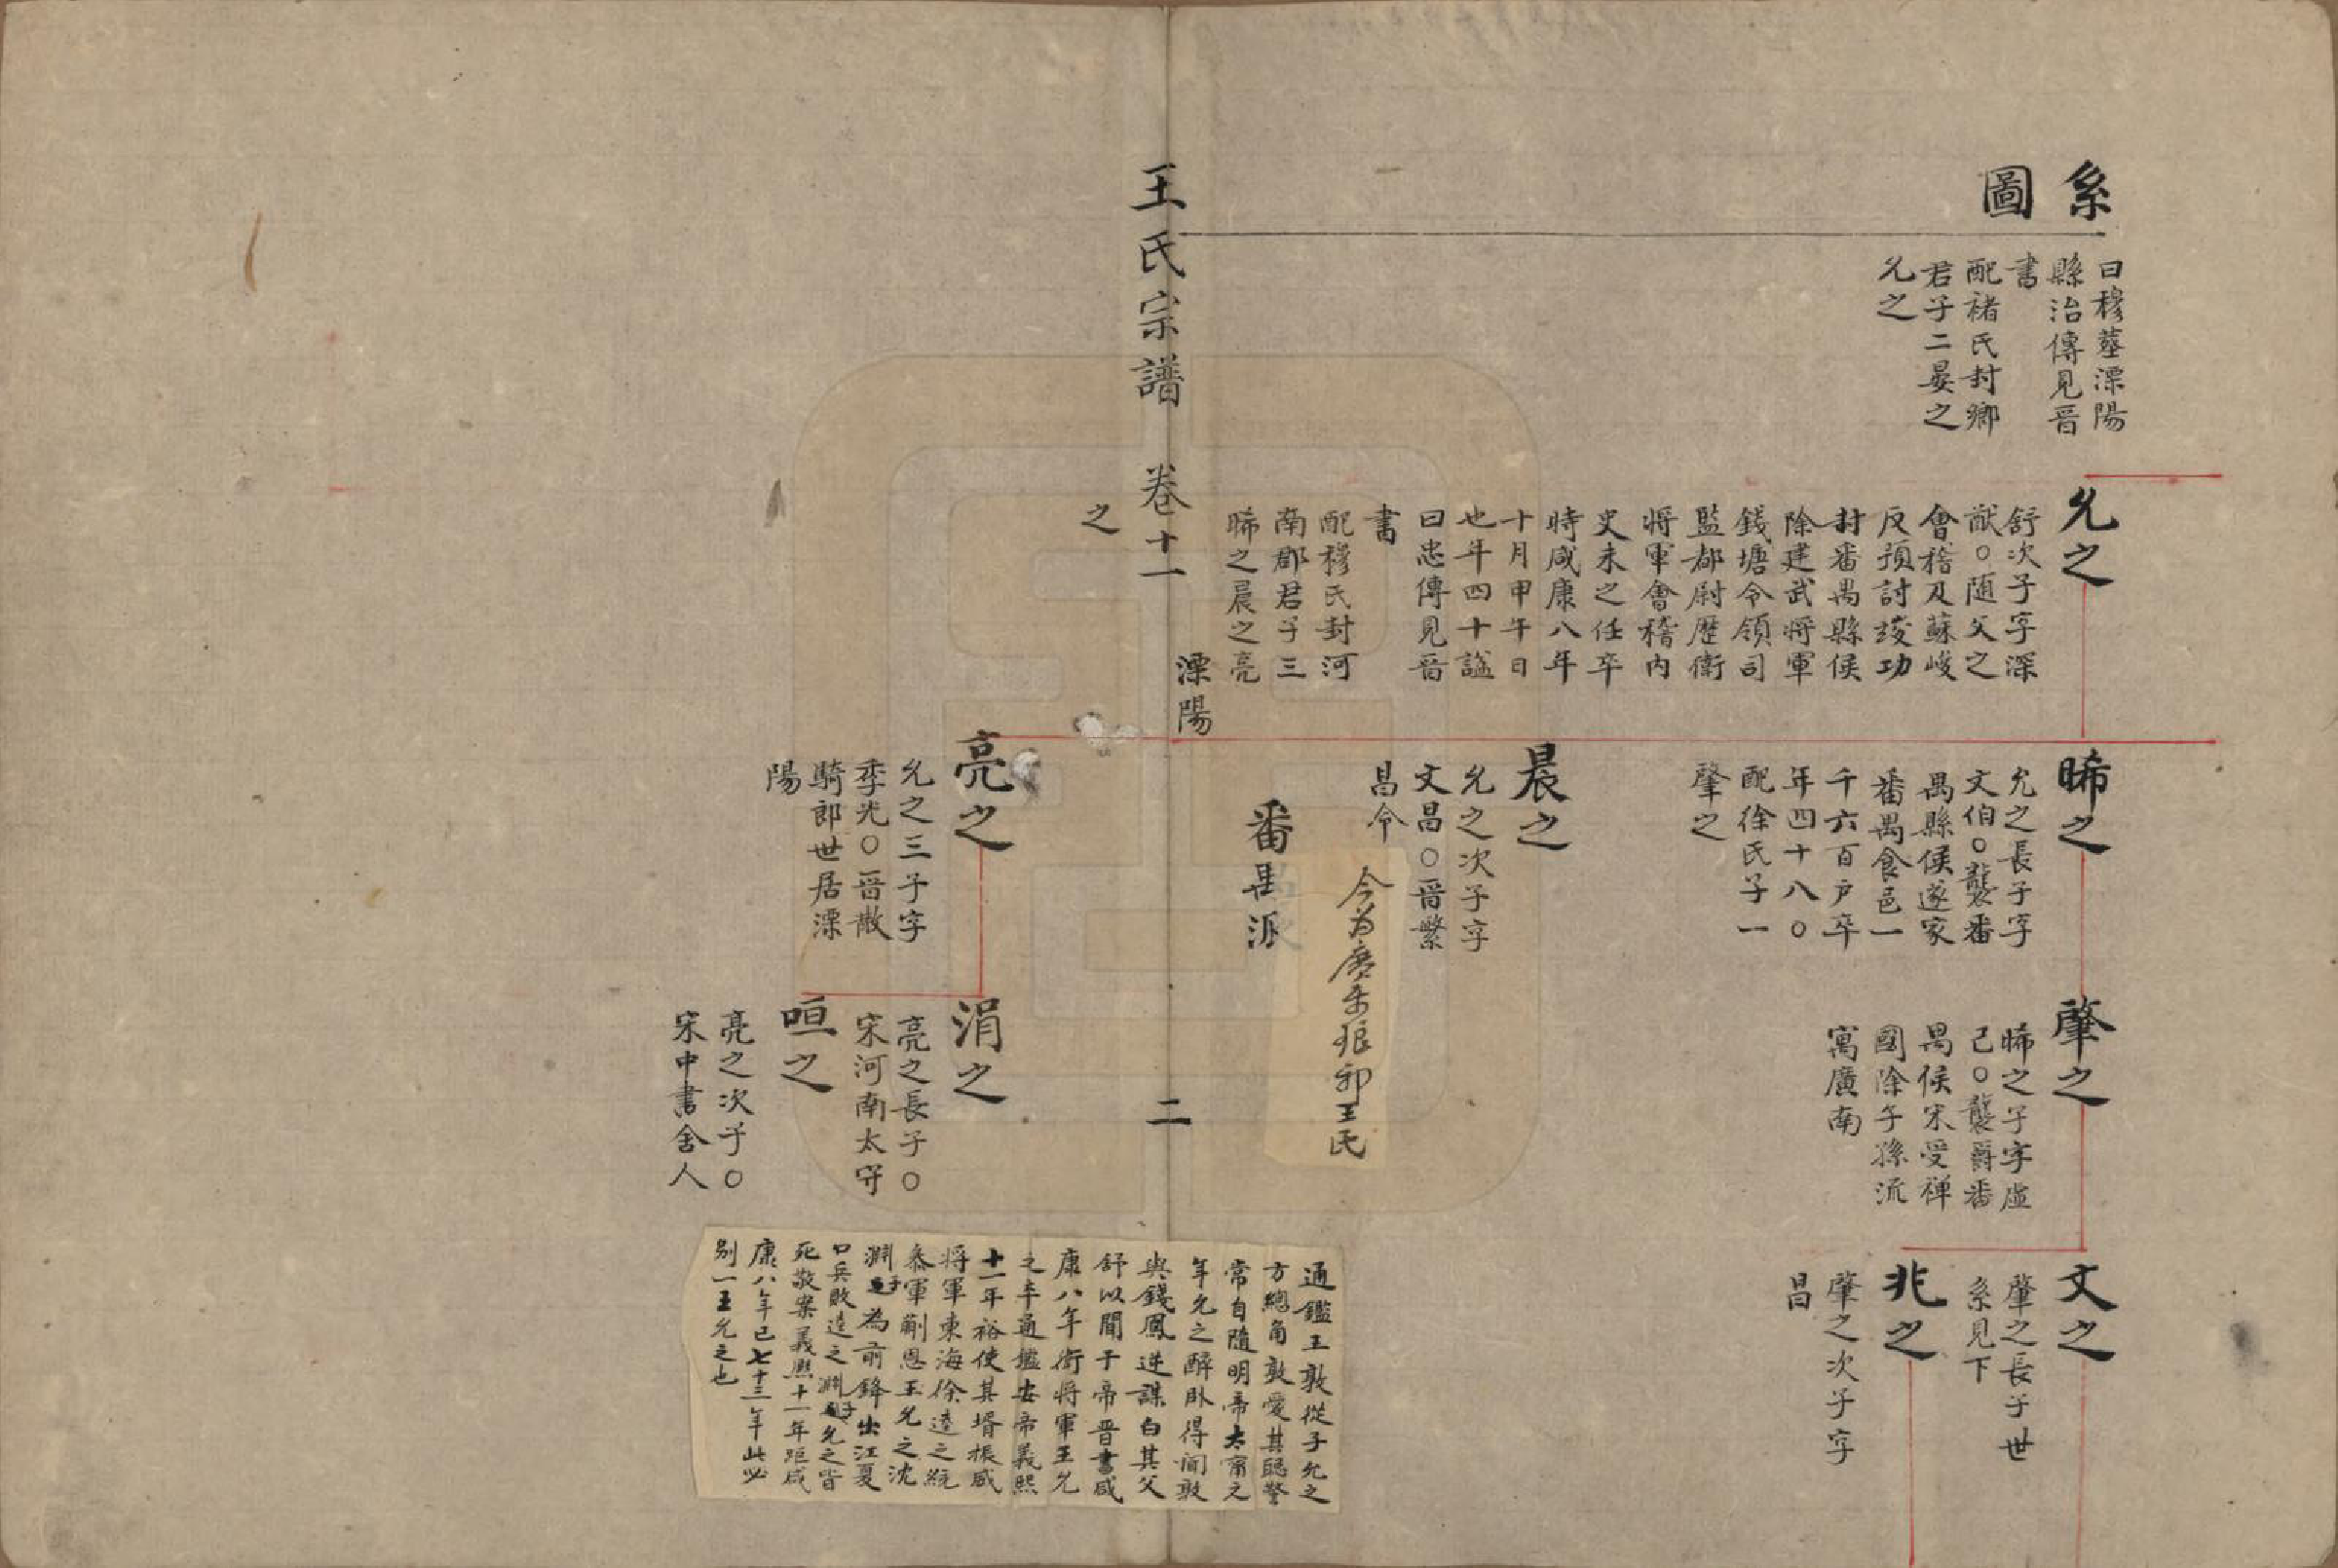 系
圖
曰穆墓溧陽
縣治傳見晉
書
配褚氏封鄉
君子二晏之
允之
允之
舒次子字深
猷○隨父之
會稽及蘇峻
反預討竣功
封番禺縣侯
除建武將軍
錢塘令領司
監都尉歷衛
將軍會稽內
史未之任卒
時咸康八年
十月甲午日
也年四十謚
曰忠傳見晉
書
配穆氏封河
南郡君子三
晞之晨之亮
之
晞之
允之長子字
文伯○襲番
禺縣侯遂家
番禺食邑一
千六百戶卒
年四十八○
配徐氏子一
肇之
晨之
允之次子字
文昌○晉繁
昌令
今为廣東琅邪王氏
番禺派
肇之
晞之子字虛
己○襲爵番
禺侯宋受禅
國除子孫流
寓廣南
文之
肇之長子世
系見下
兆之
肇之次子字
昌
王氏宗譜 卷十一
溧陽
二
亮之
允之三子字
季光○晉散
騎郎世居溧
陽
涓之
亮之長子○
宋河南太守
咺之
亮之次子○
宋中書舍人
通鑑王敦從子允之
方總角敦愛其聰警
常自隨明帝太甯元
年允之醉臥得聞敦
與錢鳳逆謀白其父
舒以聞于帝晋書咸
康八年衛將軍王允
之卒通鑑安帝義熙
十一年裕使其壻振威
將軍東海徐逵之統
叅軍蒯恩王允之沈
淵子為前鋒出江夏
口兵敗逵之淵子允之皆
死敬案義熙十一年距咸
康八年已七十三年此必
别一王允之也